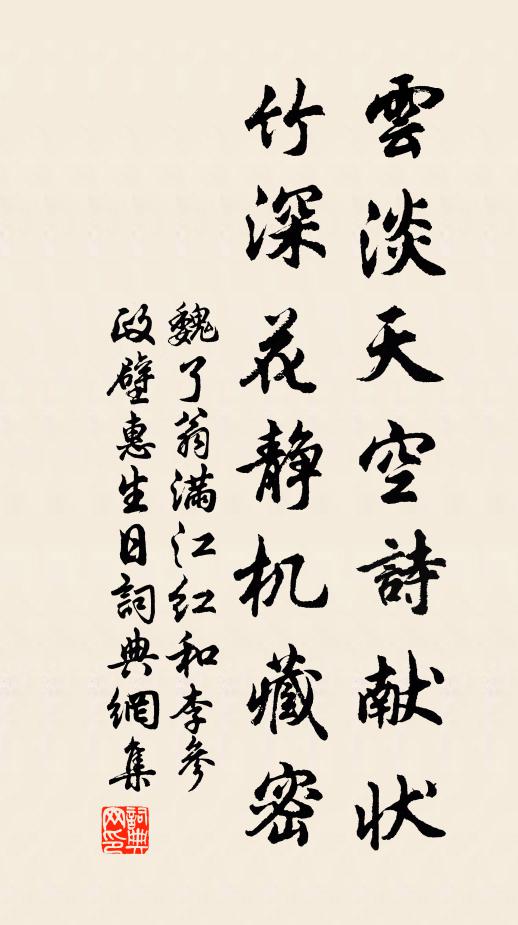 雲淡天空詩献状
竹深花静机藏密
魏了翁满江红和李參
政壁惠生日詞典網集
詞典网印